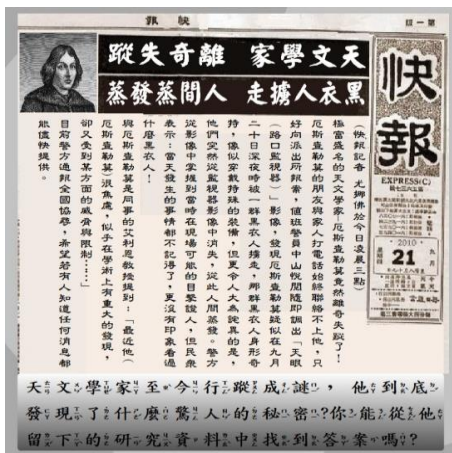 第一版
快報
EXPRESS(C)
2010
九月
21
星期
天文學家 離奇失蹤
黑衣人擄走 人間蒸發蒸
極富盛名的天文學家「厄斯查勒莫竟然離奇失蹤了!
厄斯查勒莫的朋友與家人打電話始終聯絡不上他,只
好向派出所報案,值班警員中山悅聞隨即調出「天眼
(路口監視器)」影像,發現厄斯查勒莫疑似在九月
二十日深夜時被一群黑衣人擄走,那群黑衣人身形奇
特,像似穿載特殊的裝備,但更令人大為詫異的是,
他們突然從監視器影像中消失,從此人間蒸發。警方
從影像中掌握到當時在現場可能的目擊證人,但民眾
表示:當天發生的事情都不記得了,更沒有印象看過
什麼黑衣人!
與厄斯查勒莫是同事的艾利恩教授提到:「最近他(
厄斯查勒莫)很焦慮,似乎在學術上有重大的發現,
卻又受到某方面的威脅與限制....」
目前警方通報全國協尋,希望若有人知道任何消息都
能儘快提供。
天文學家至今行蹤成謎,他到底
發現了什麼驚人的秘密?你能從他
留下的研究資料中找到答案嗎?